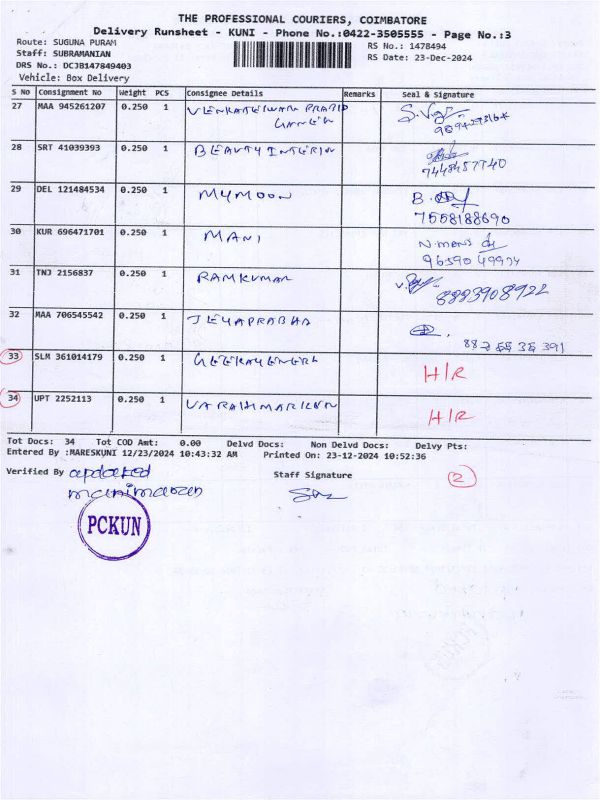 THE PROFESSIONAL COURIERS, COIMBATORE
Delivery Runsheet - KUNI - Phone No.:0422-3505555 - Page No.:3
Route: SUGUNA PURAM RS No.: 1478494
Staff: SUBRAMANIAN RS Date: 23-Dec-2024
DRS No.: DCJB147849403
Vehicle: Box Delivery
S No Consignment No Weight PCS Consignee Details Remarks Seal & Signature
27 MAA 945261207 0.250 1
28 SRT 41039393 0.250 1 BEAUTY INTERIO
7448487740
29 DEL 121484534 0.250 1 MYMOON B.
7558188690
30 KUR 696471701 0.250 1 MANI N. mani
31 TNJ 2156837 0.250 1 RAMKUMAR 8883908922
32 MAA 706545542 0.250 1 JEYAPRABHA
33 SLM 361014179 0.250 1 H/R
34 UPT 2252113 0.250 1 H/R
Tot Docs: 34 Tot COD Amt: 0.00 Delvd Docs: Non Delvd Docs: Delvy Pts:
Entered By :MARESKUNI 12/23/2024 10:43:32 AM Printed On: 23-12-2024 10:52:36
Verified By updated Staff Signature 2
manimaran
PCKUN